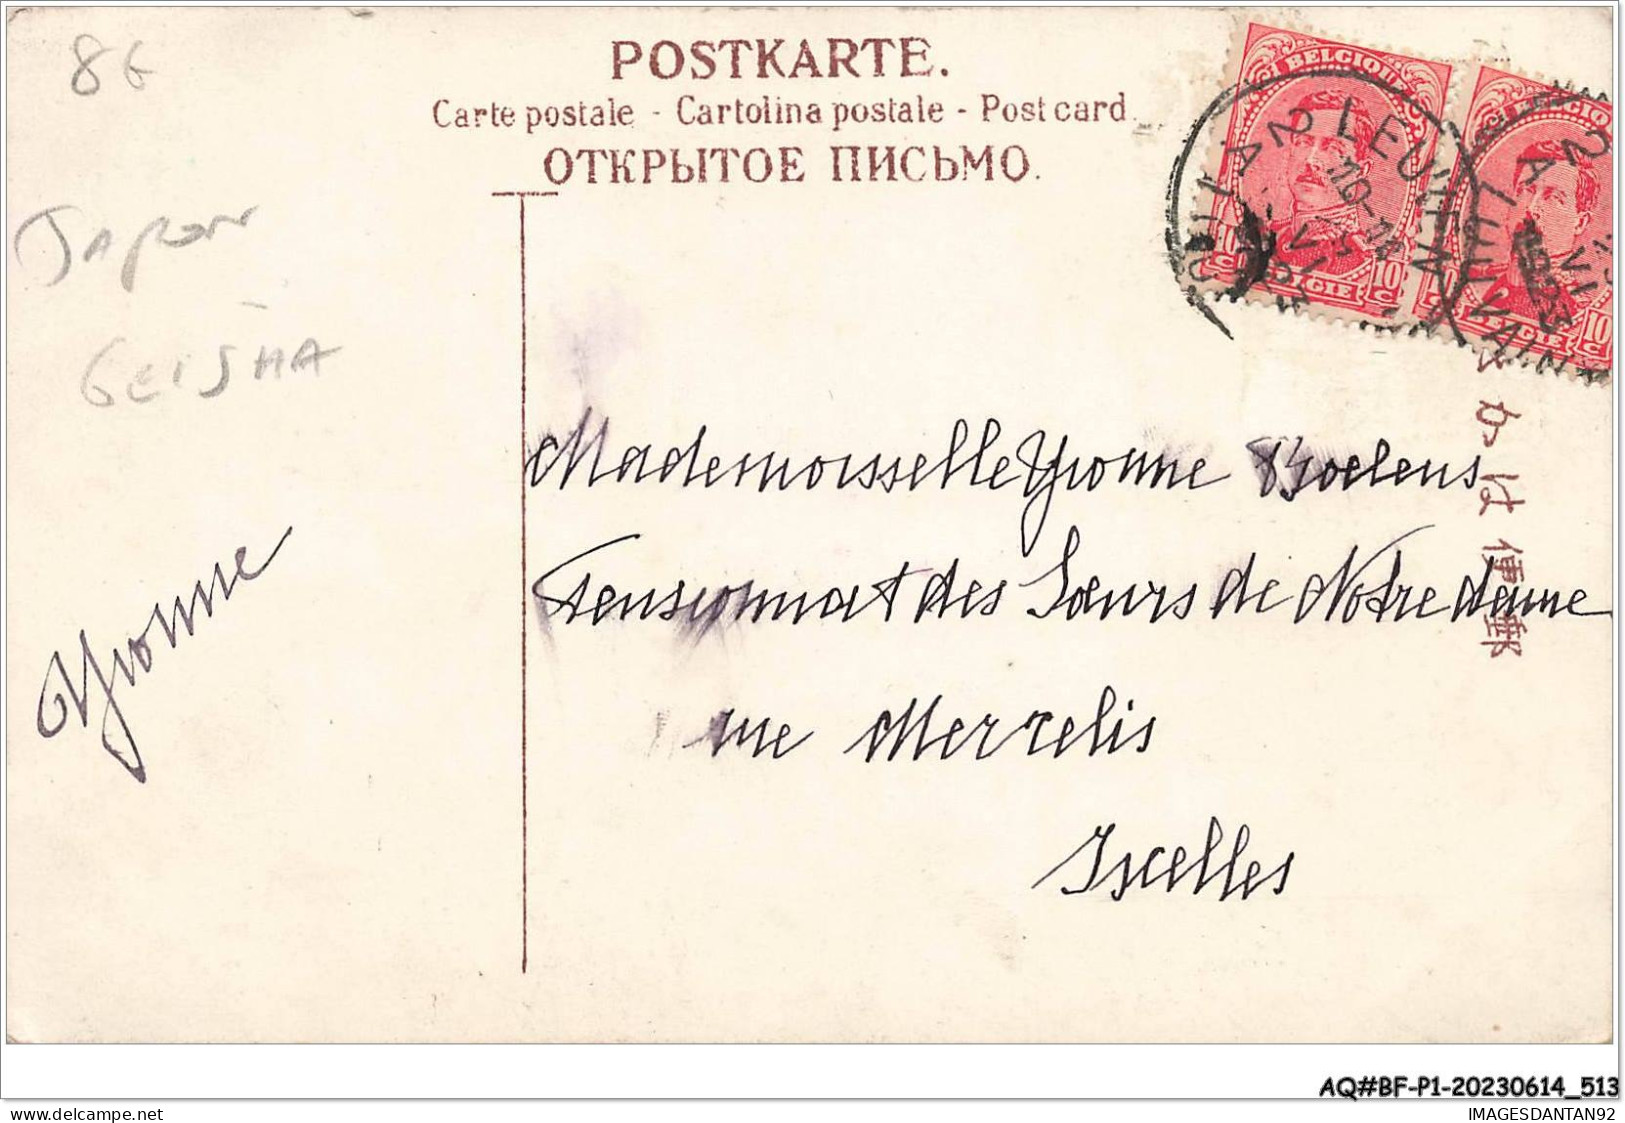 8€
POSTKARTE.
Carte postale - Cartolina postale - Post card
ОТКРЫТОЕ ПИСЬМО.
BELGIQUE
BELGIQUE
LEUVEN
LOUVAIN
10 C
10 C
BELGIE
BELGIE
1923
Japon
GEISHA
きがは便郵
Mademoisselle Yvonne Boelens
Pensionnat des Sœurs de Notre dame
rue Mercelis
Ixelles
Yvonne
AQ#BF-P1-20230614_513
86-delc
IMAGESDANTAN92